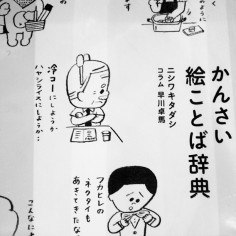 かんさい
絵ことば辞典
ニシワキタダシ
コラム 早川卓馬
のように
です
冷コーにしようか
ハヤシライスにしようか…
フカヒレの
ネクタイも
あきてきたな
こんなによ